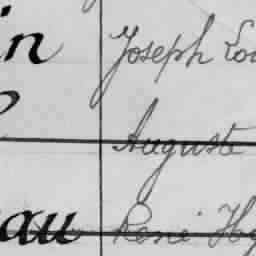 in Joseph Lou
Auguste
eau René Hy